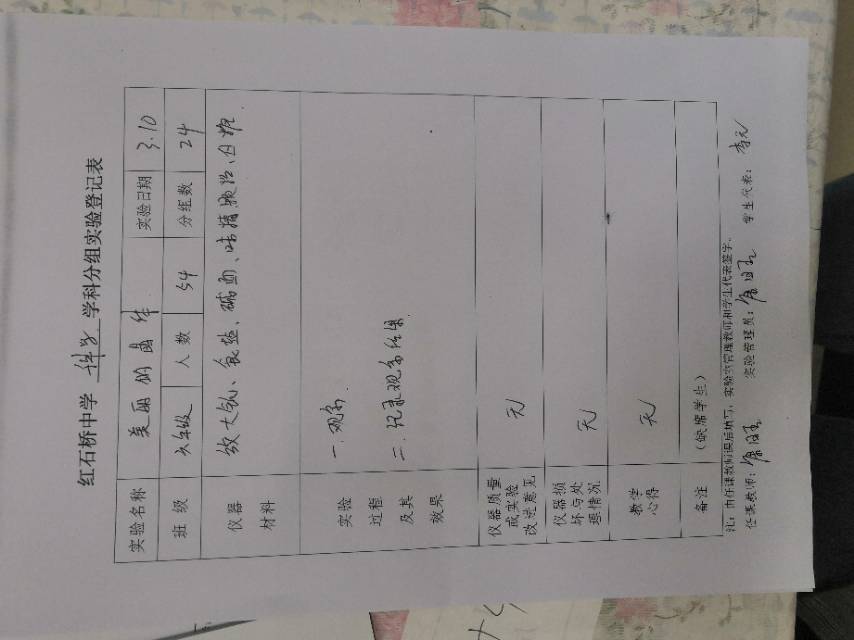 红石桥中学 科学 学科分组实验登记表
实验名称 美丽的晶体 实验日期 3.10
班级 六年级 人数 54 分组数 24
仪器材料 放大镜、食盐、碱面、味精、白糖
实验过程及其效果 一.观察.
二.记录观察结果
仪器质量或实验改进意见 无
仪器损坏与处理情况 无
教学心得 无
备注 (缺席学生)
注：由任课教师课后填写，实验室管理教师和学生代表签字。
任课教师： 实验管理员： 学生代表：